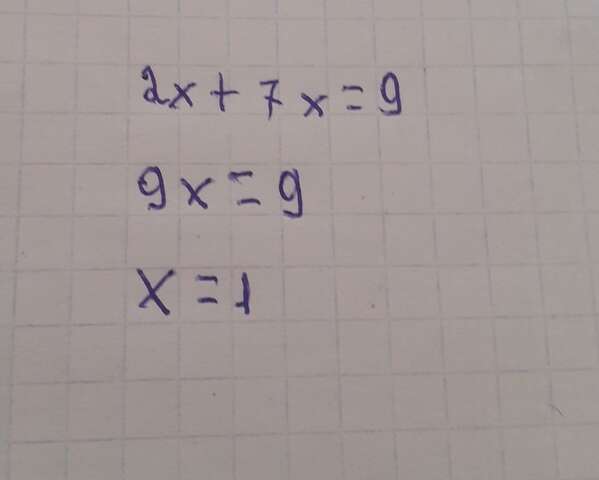 2x + 7x = 9
9x = 9
x = 1